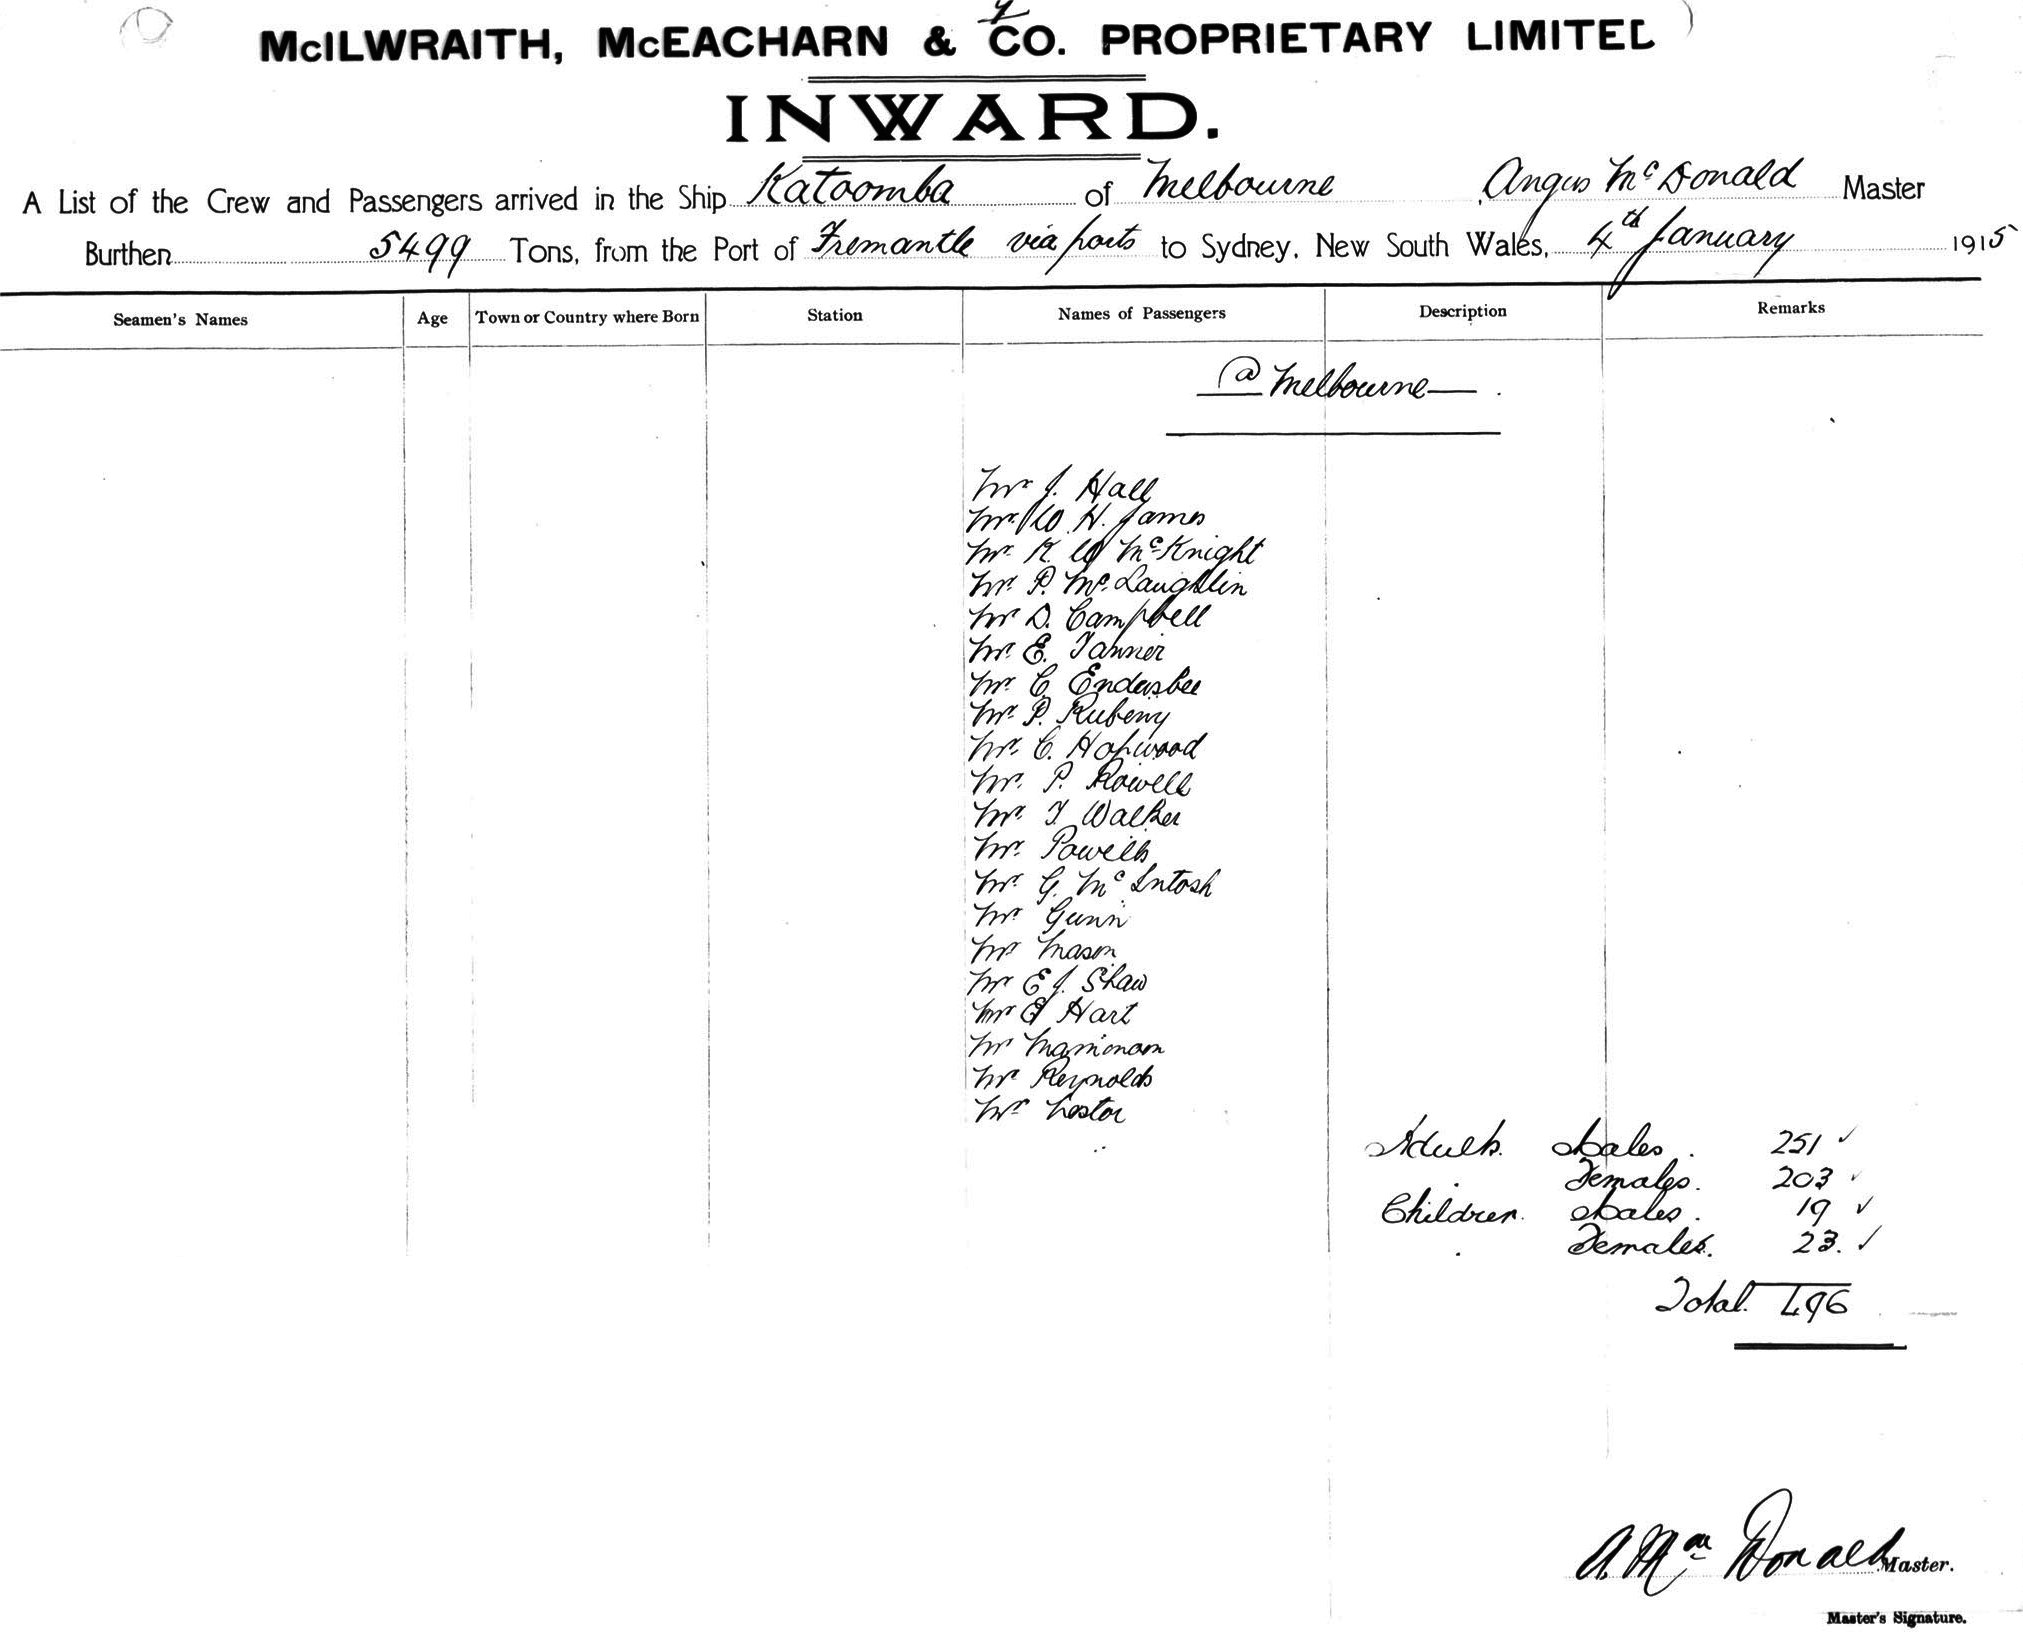 McILWRAITH, McEACHARN & CO. PROPRIETARY LIMITED
INWARD.
A List of the Crew and Passengers arrived in the Ship Katoomba of Melbourne, Angus McDonald Master
Burthen 5499 Tons, from the Port of Fremantle via ports to Sydney, New South Wales, 4th January 1915
Seamen's Names Age Town or Country where Born Station Names of Passengers Description Remarks
@ Melbourne
Mr J. Hall
Mr. W. H. James
Mr. K. W McKnight
Mr. P. McLaughlin
Mr D. Campbell
Mr. E. Tanner
Mr. C. Endersbee
Mr. P. Rubeny
Mr. C. Hopwood
Mr. P. Rowell
Mr. T Walker
Mr. Powells
Mr. G. McIntosh
Mr Gunn
Mr Mason
Mr E J. Shaw
Mr E Hart
Mr
Mr Reynolds
Mr Lestor
Adults. Males. 251 ✓
Females. 203 ✓
Children. Males. 19 ✓
Females. 23. ✓
Total. 496
A. MacDonald Master.
Master's Signature.